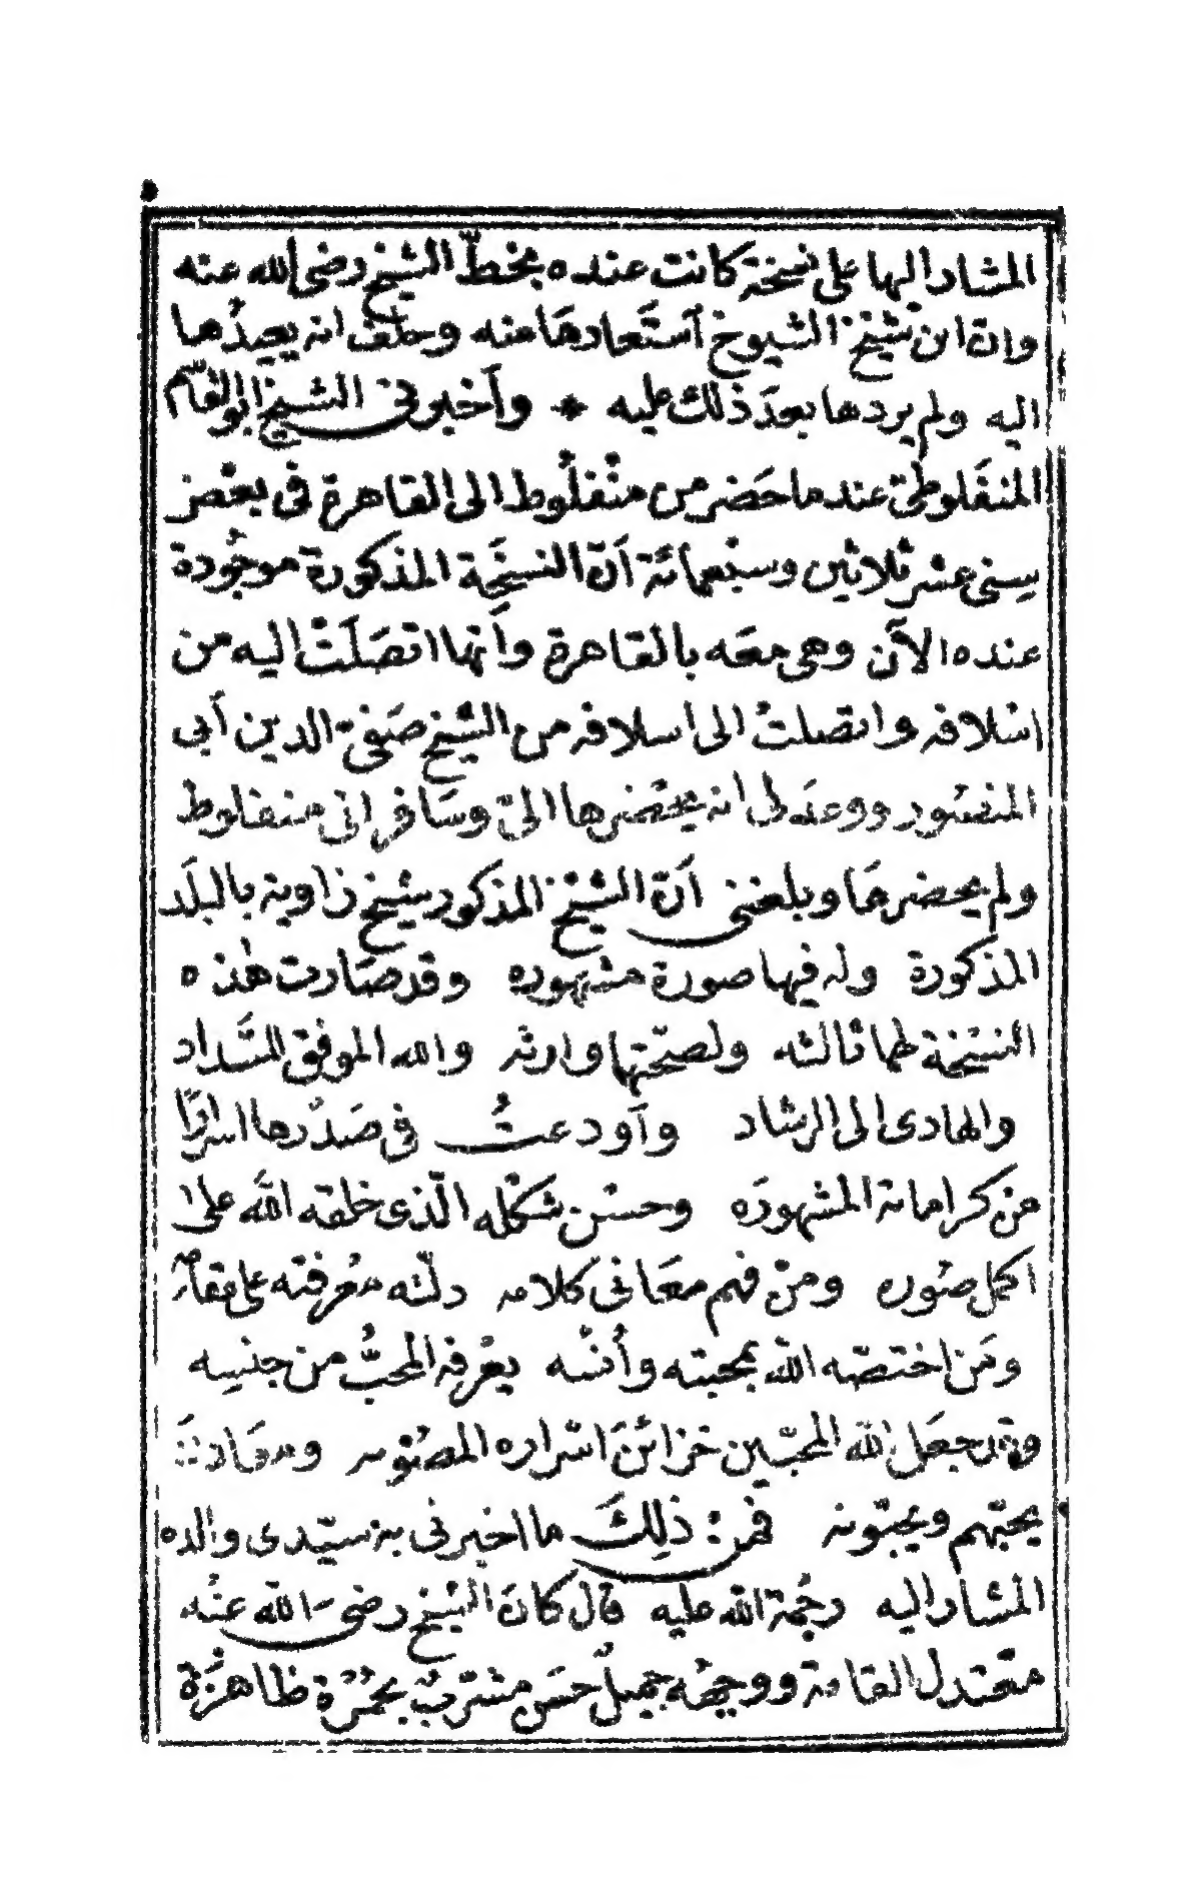 المشار اليها على نسخة كانت عنده بخطّ الشيخ رضى الله عنه
وان ابن شيخ الشيوخ آستَعادهَا منه وحلف انه يعيدُها
اليه ولم يردها بعدَ ذلك عليه * وآخبرنى الشيخ ابو القاسم
المنفَلوطى عند ما حَضر من منْفلُوط الى القاهرة فى بعْض
سِنى عشر ثلاثين وسبْعمائة آنّ النسْخَة المذكورة موجُودة
عنده الآن وهى معَه بالقاهرة وآنها اتصَلَتْ اليه من
اسْلافه واتصلتْ الى اسلافه من الشّيخ صَفىّ الدين آبى
المنصُور ووعَد لى انه يحْضرها الىّ وسَافر الى منفلوط
ولم يحضرهَا وبلغنى آنّ الشيْخ المذكور شيْخ زاوية بالبلَد
المذكورة وله فيها صورة مشهوره وقد صَارت هٰذه
النسْخة لهما ثالثه ولصحّتها وارثه والله الموفق للسَّداد
والهادى الى الرشاد وآودعتُ فى صَدْرها اسرارًا
من كراماته المشهورَه وحسْن شكْله الّذى خلقه اللّه علىٰ
اكمل صُوره ومنْ فهم معَانى كلامه دلّته معْرفته على مقامه
ومَن اختصّه اللّه بمحبته وأُنسْه يعْرفه المحبُّ من جنسِه
وقد جعَل اللّه المحبّين خزائنَ اسْراره المصُونه ومعَادنَ
يحبّهم ويحبّونه فمن: ذلِكَ ما اخبرنى به سيّدى والده
المشار اليه رحْمة اللّه عليه قال كانَ الشيْخ رضى الله عنْه
معْتدل القامة ووجهُه جميلٌ حسَن مشْربٌ بحمْرَة ظاهرَة